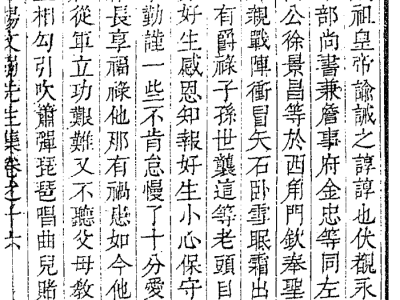 祖皇帝諭誡之諄諄也伏觀永
部尚書兼詹事府金忠等同左
公徐景昌等於西角門欽奉聖
親戰陣衝冒矢石卧雪眠霜出
有爵祿子孫世襲這等老頭目
好生感恩知報好生小心保守
勤謹一些不肯怠慢了十分愛
長享福祿他那有禍患如今他
從軍立功艱難又不聽父母敎
相勾引吹簫彈琵琶唱曲兒賭
楊文敏先生集卷之十六